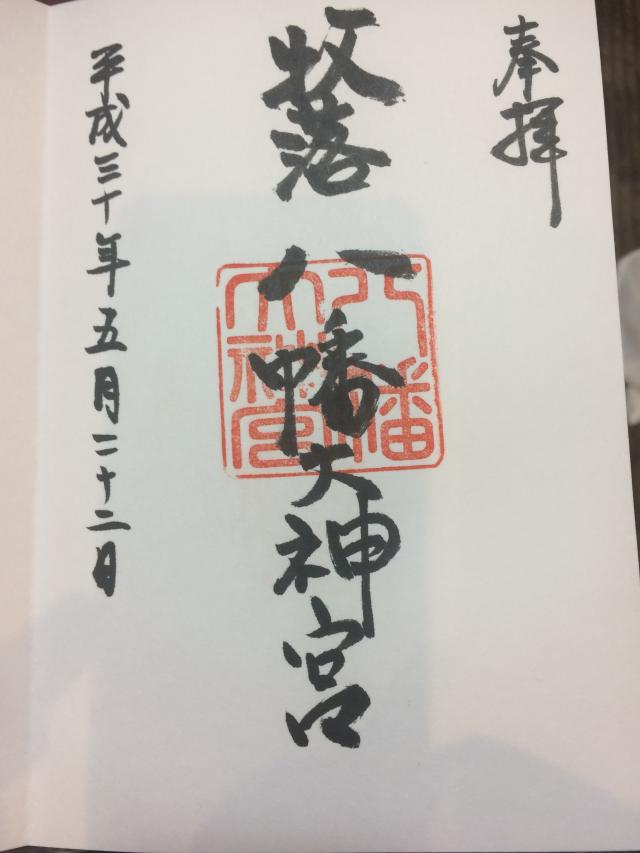 奉拝
牧落 八幡大神宮
八幡大神宮
平成三十年五月二十二日